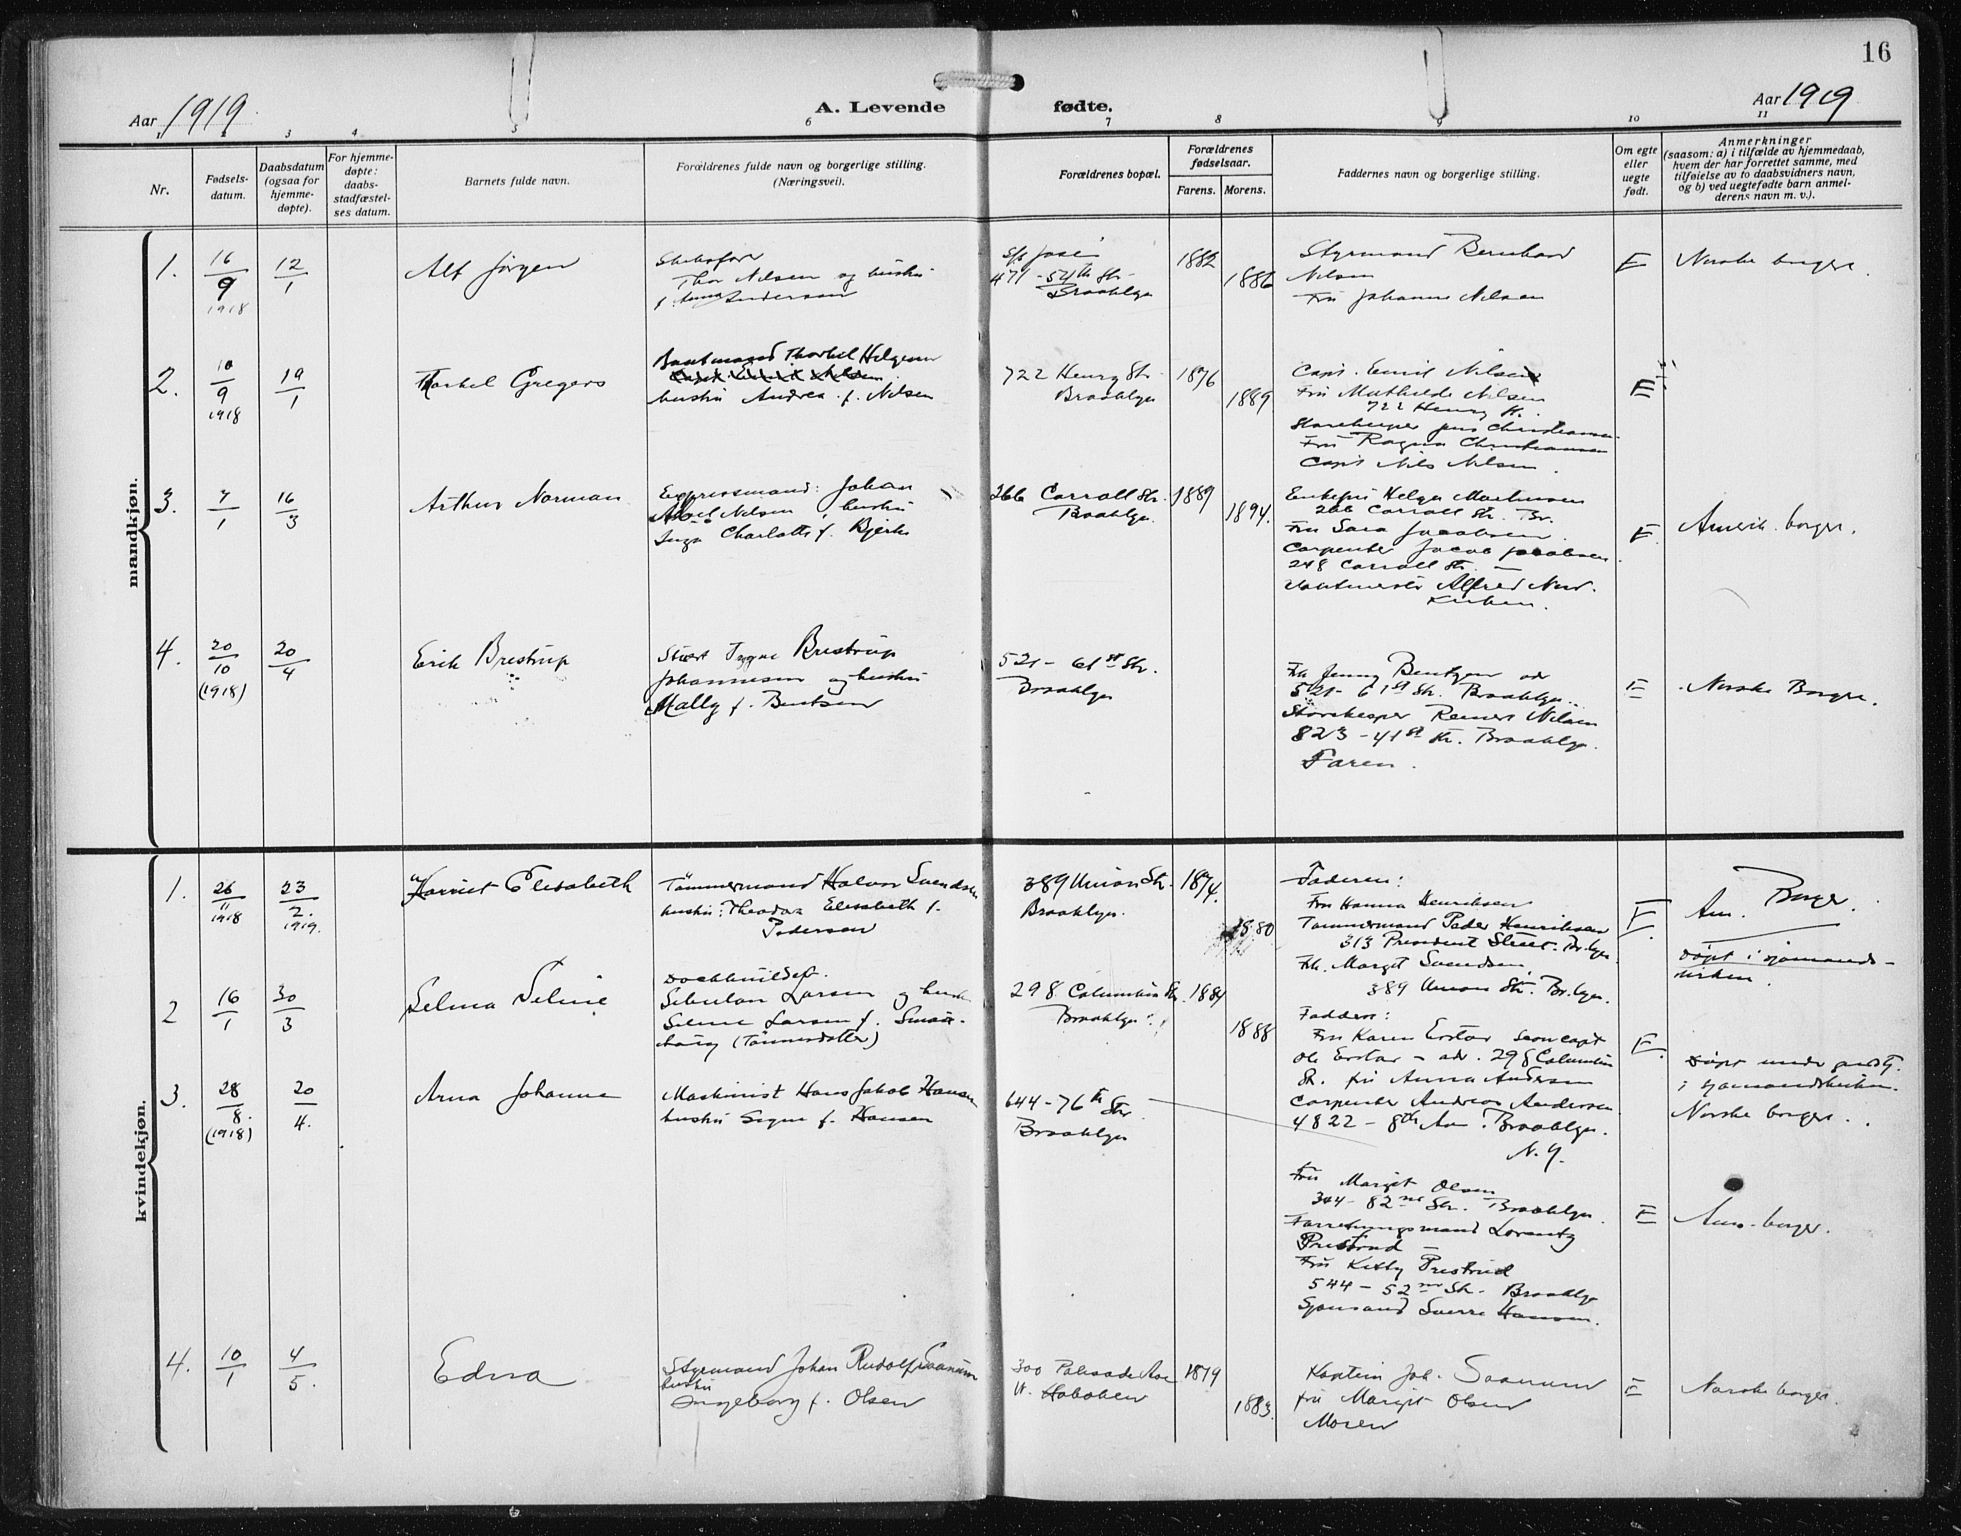 16
Aar 1919.
A. Levende fødte.
Aar 1919
1 2 3 4 5 6 7 8 9 10 11
Nr.
Fødsels-
datum.
Daabsdatum
(ogsaa for
hjemme-
døpte).
For hjemme-
døpte:
daabs-
stadfæstel-
ses datum.
Barnets fulde navn.
Forældrenes fulde navn og borgerlige stilling.
(Næringsvei).
Forældrenes bopæl.
Forældrenes
fødselsaar.
Farens. Morens.
Faddernes navn og borgerlige stilling.
Om egte
eller
uegte
født.
Anmerkninger
(saasom: a) i tilfælde av hjemmedaab,
hvem der har forrettet samme, med
tilføielse av to daabsvidners navn,
og b) ved uegtefødte barn anmel-
derens navn m. v.).
mandkjøn.
1.
16/9
1918
12/1
Alf Jörgen
Thor Nilsen og hustru
f. Anna Andersen
471 - 54th Str.
Brooklyn
1882
1886
Styrmand Bernhard
Nilsen
Fru Johanne Nilsen
E
Norske borgere.
2.
10/9
1918
19/1
Thorkel Gregers
Baatmand Thorkel Helgesen
hustru Andrea f. Nilsen
722 Henry Str.
Brooklyn
1876
1889
Capt. Emil Nilsen
Fru Mathilde Nilsen
722 Henry St.
Storekeeper Jens Christiansen
Fru Ragna Christiansen
Capt Nils Nilsen.
E
3.
7/1
16/3
Arthur Norman
Expressmand: Johan
Nilsen, hustru
Inga Charlotte f. Bjerke
266 Carroll Str.
Brooklyn.
1889
1894.
Enkefru Helga
266 Carroll Str. Br.
Fru Sara Jacobsen.
Carpenter Jacob Jacobsen
248 Carroll Str. —
Alfred
E.
Amerik. borger.
4.
20/10
(1918)
20/4
Erik Brestrup
Brestrup
Johannesen og hustru
Mally f. Bentsen
521 - 61st Str.
Brooklyn
Frk Jenny Bentzen
521 - 61st Str. Brooklyn.
Storekeeper Reinert Nilsen
823 - 41st Str. Brooklyn.
Faren.
E
Norske Borgere.
kvindekjøn.
1.
26/11
1918
23/2.
1919.
Harriet Elisabeth
Tømmermand Halvor Svendsen
hustru: Theodora Elisabeth f.
Pedersen
389 Union Str.
Brooklyn.
1874.
1880
Faderen:
Fru Hanna Henriksen
Tømmermand Peder Henriksen
313 President Street. Br.lyn.
Frk. Margit Svendsen,
389 Union Str. Br.lyn.
E.
Am. Borger.
døpt i sjømands-
kirken.
2
16/1
30/3
Selma Seline
Larsen og hustru
Seline Larsen f.
(Tønnesdatter)
298 Columbia Str.
Brooklyn
1884
1888
Faddere:
Fru Karen
298 Columbia
Str. fru Anna Andersen
Carpenter Andreas Andersen
4822 - 8th Av. Brooklyn.
N.Y.
E.
Døpt under gudstj.
i sjømandskirken.
Norske borgere.
3.
28/8.
(1918)
20/4.
Arna Johanne
Maskinist Hans Jakob Hansen
hustru Signe f. Hansen
644 - 76th Str
Brooklyn
Fru Margit Olsen
344 - 82nd Str. Brooklyn.
Forretningsmand Lorentz
Prestrud —
Fru Kitty Prestrud
544 - 52nd Str. Brooklyn
Sjømand Sverre Hansen.
E
Am. borger.
4.
10/1
4/5.
Edna
Styrmand Johan Rudolf Saanum
hustru
Ingeborg f. Olsen
300 Palisade Ave
W. Hoboken
1879
1883.
Kaptein Joh. Saanum
fru Margit Olsen
Moren
E
Norske borgere.